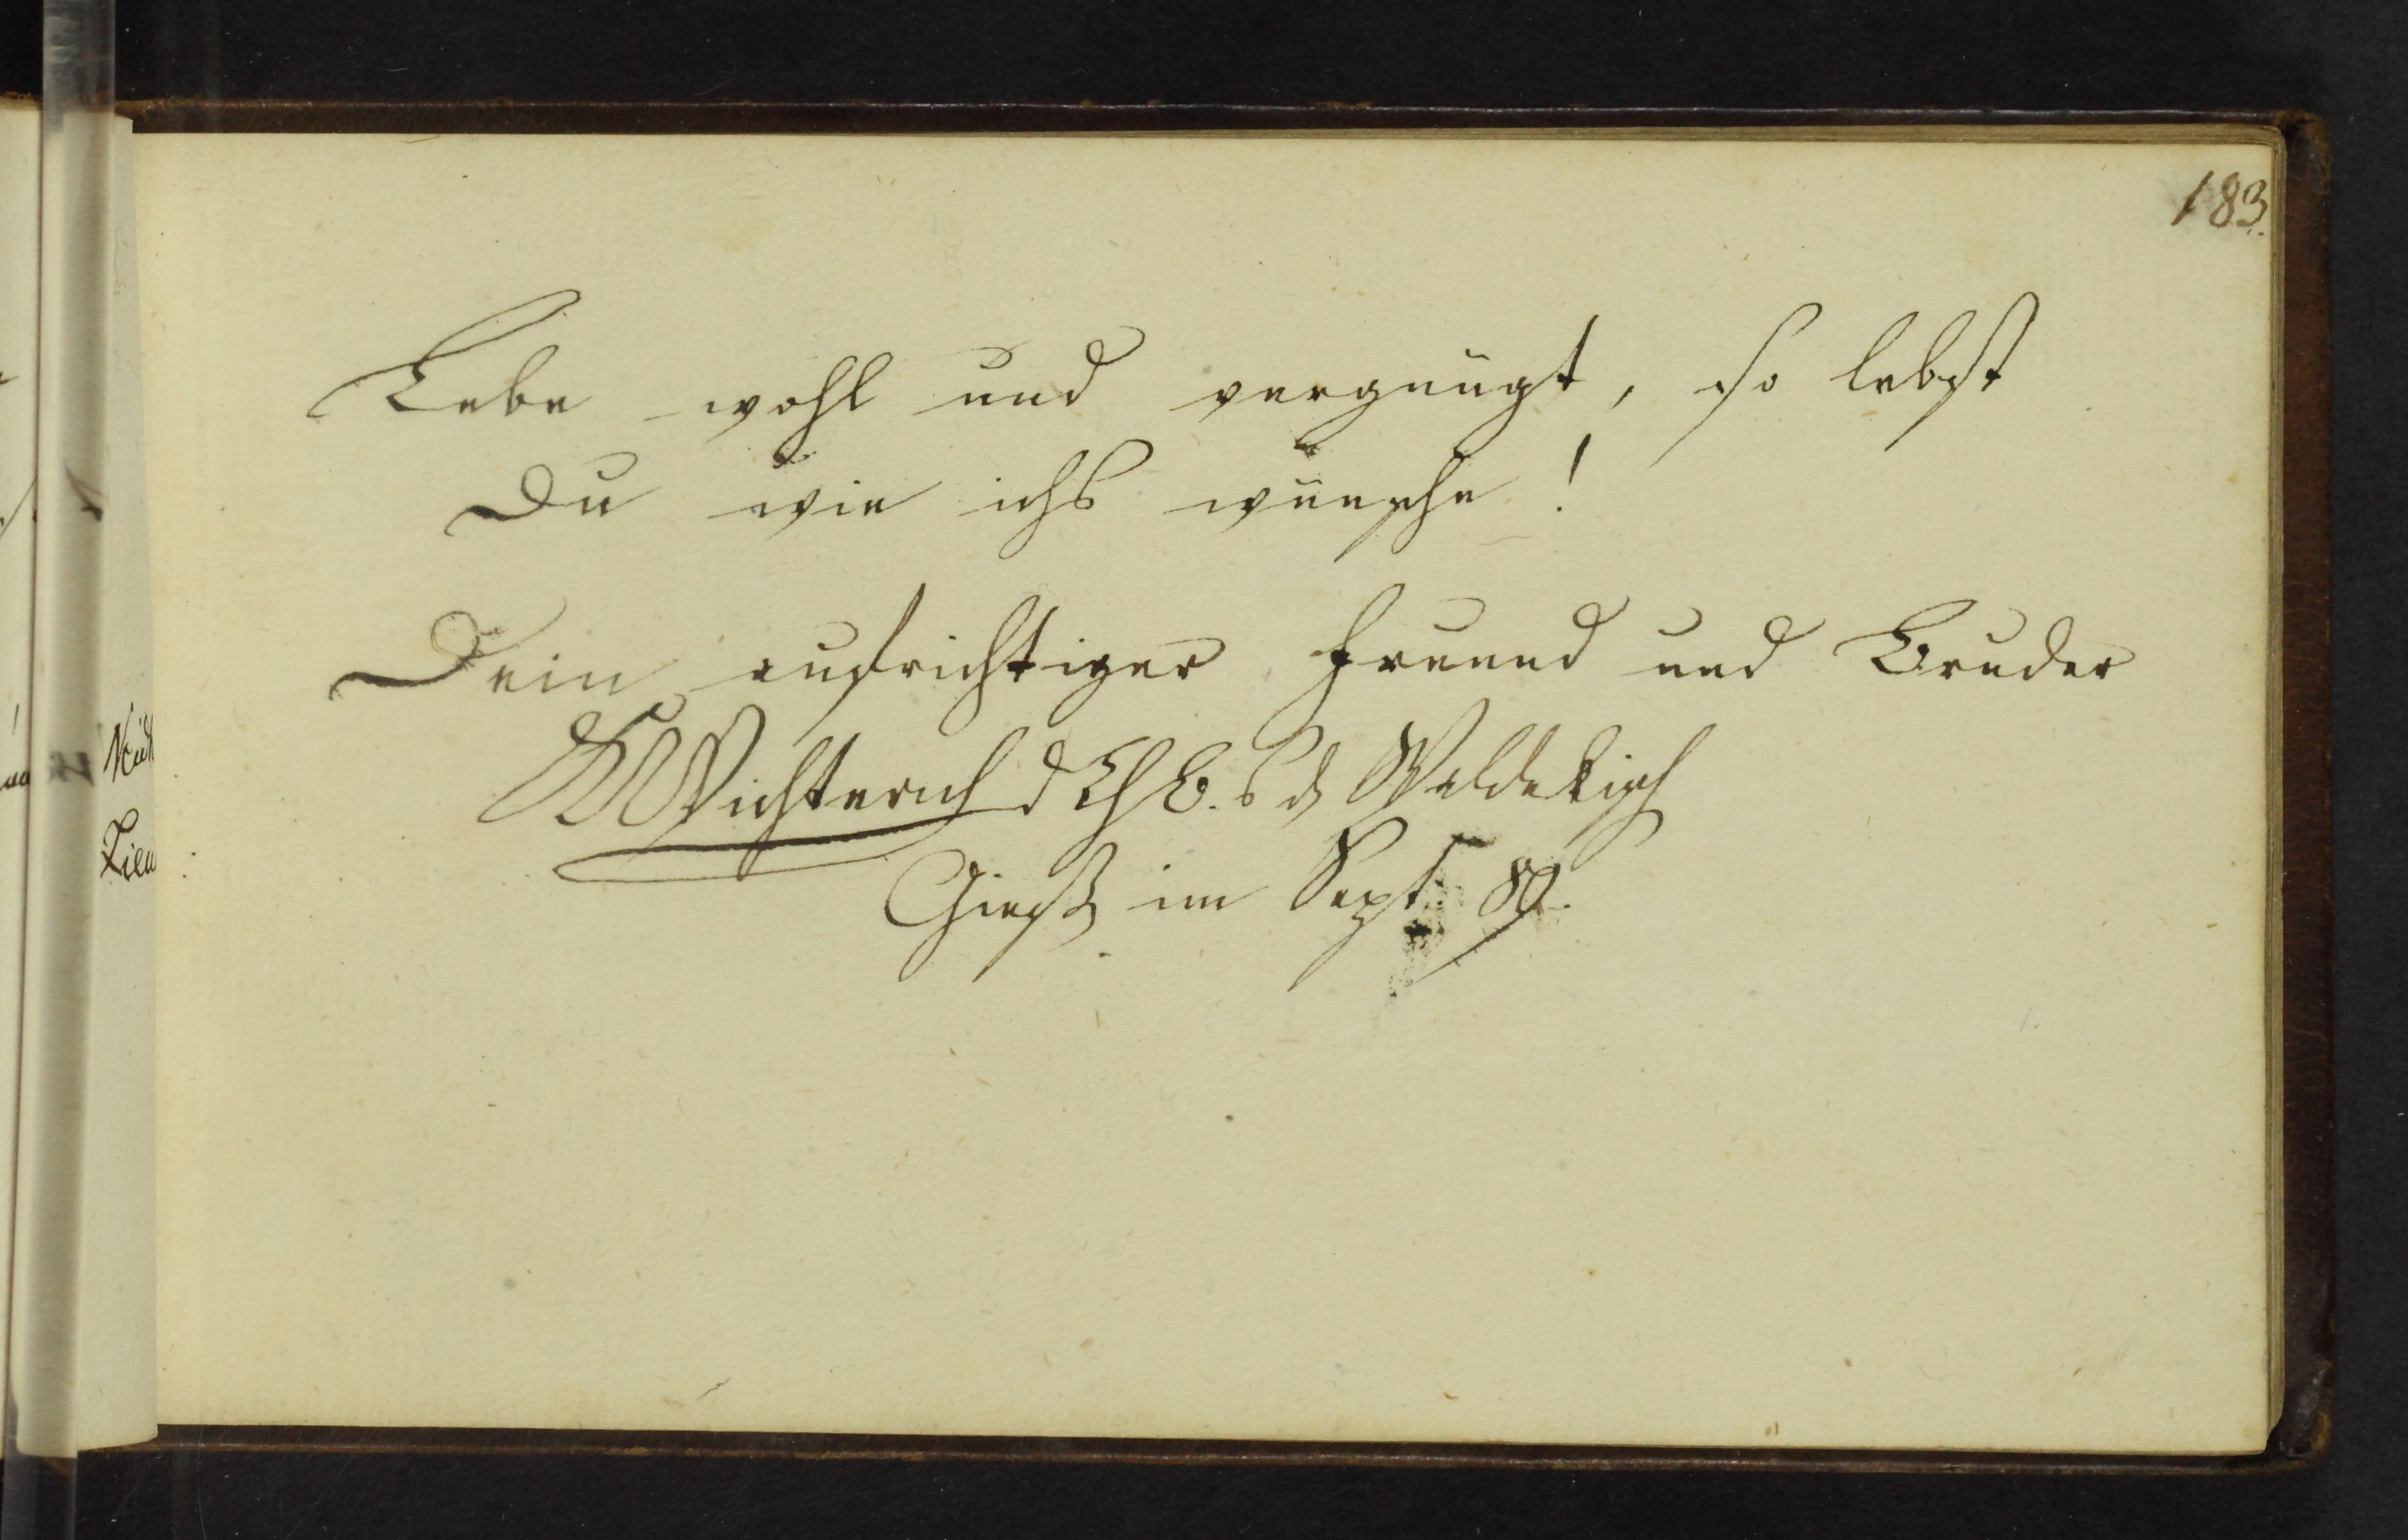 183.
Lebe wohl und vergnügt, so lebst
Du wie ichs wünsche!
Dein aufrichtiger Freund und Bruder
Wichterich d
Gieß im Sept: 89.